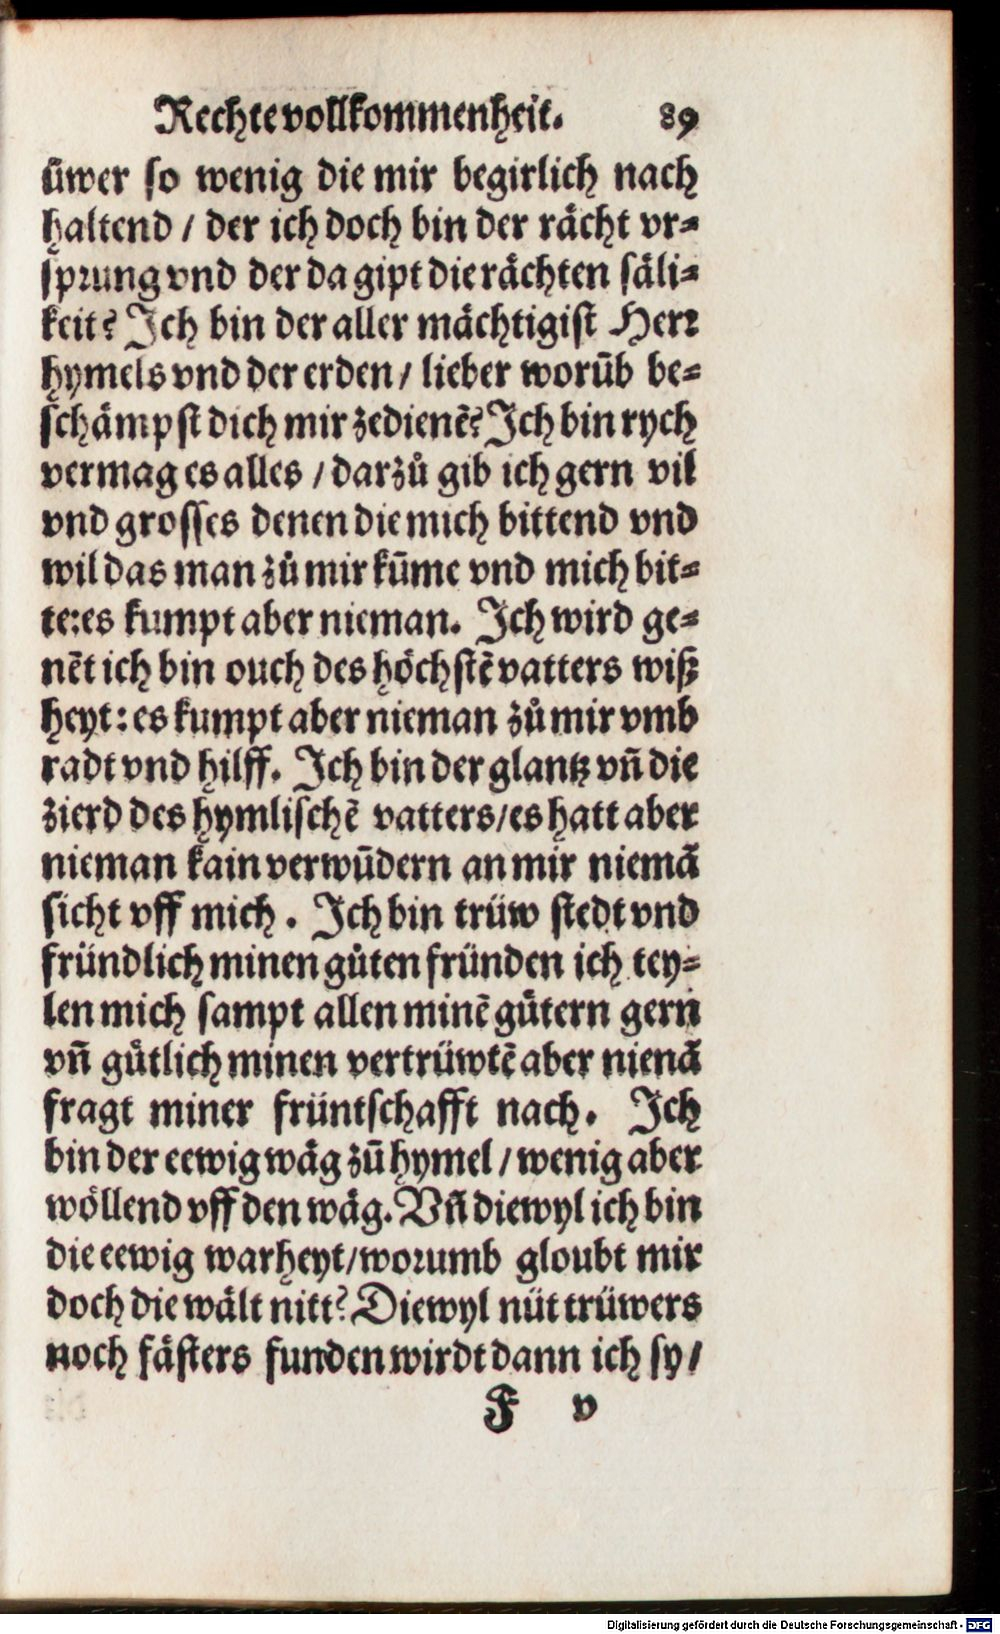 Rechte vollkommenheit. 89
üwer so wenig die mir begirlich nach
haltend / der ich doch bin der rächt vr⸗
sprung vnd der da gipt die rächten säli⸗
keit? Ich bin der aller mächtigist Herr
hymels vnd der erden / lieber worūb be⸗
schämpst dich mir zedienē? Ich bin rych
vermag es alles / darzů gib ich gern vil
vnd grosses denen die mich bittend vnd
wil das man zů mir kūme vnd mich bit⸗
te: es kumpt aber nieman. Ich wird ge⸗
nēt ich bin ouch des höchstē vatters wiß
heyt: es kumpt aber nieman zů mir vmb
radt vnd hilff. Ich bin der glantz vn̄ die
zierd des hymlischē vatters / es hatt aber
nieman kain verwūdern an mir niemā
sicht vff mich. Ich bin trüw stedt vnd
fründlich minen gůten fründen ich tey⸗
len mich sampt allen minē gütern gern
vn̄ gütlich minen vertrüwtē aber nienā
fragt miner früntschafft nach. Ich
bin der eewig wäg zū hymel / wenig aber
wöllend vff den wäg. Vn̄ diewyl ich bin
die eewig warheyt / worumb gloubt mir
doch die wält nitt? Diewyl nüt trüwers
noch fästers funden wirdt dann ich sy /
F v
Digitalisierung gefördert durch die Deutsche Forschungsgemeinschaft - DFG